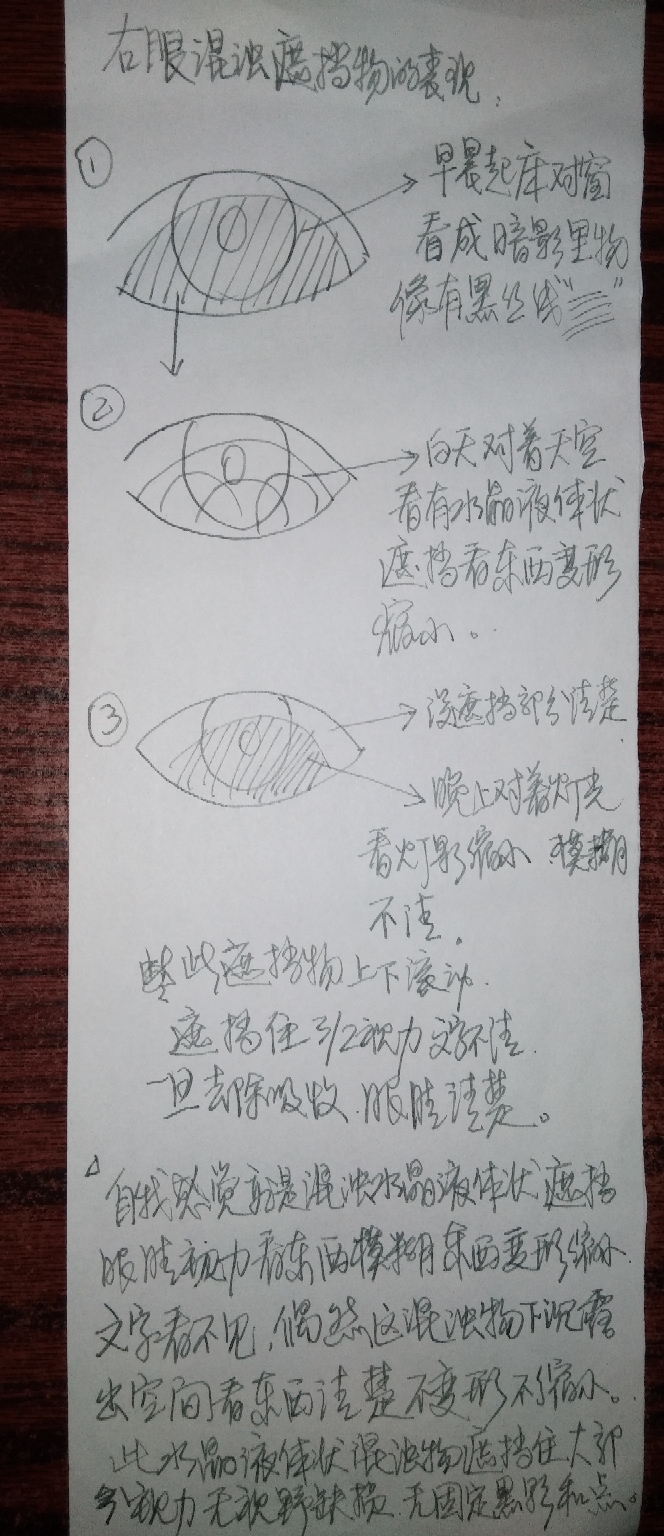 右眼混浊遮挡物的表现:
①
早晨起床对窗
看成暗影里物
像有黑丝线“”
②
白天对着天空
看有水晶液体状
遮挡看东西变形
缩小。
③
没遮挡部分清楚
晚上对着灯光
看灯影缩小 模糊
不清.
此遮挡物上下滚动.
遮挡住3/2视力文字不清.
一旦去除吸收.眼睛清楚。
△
自我感觉就是混浊水晶液体状遮挡
眼睛视力看东西模糊东西变形缩小.
文字看不见,偶然这混浊物下沉露
出空间看东西清楚不变形不缩小。
此水晶液体状混浊物遮挡住大部
分视力无视野缺损.无固定黑影和点。